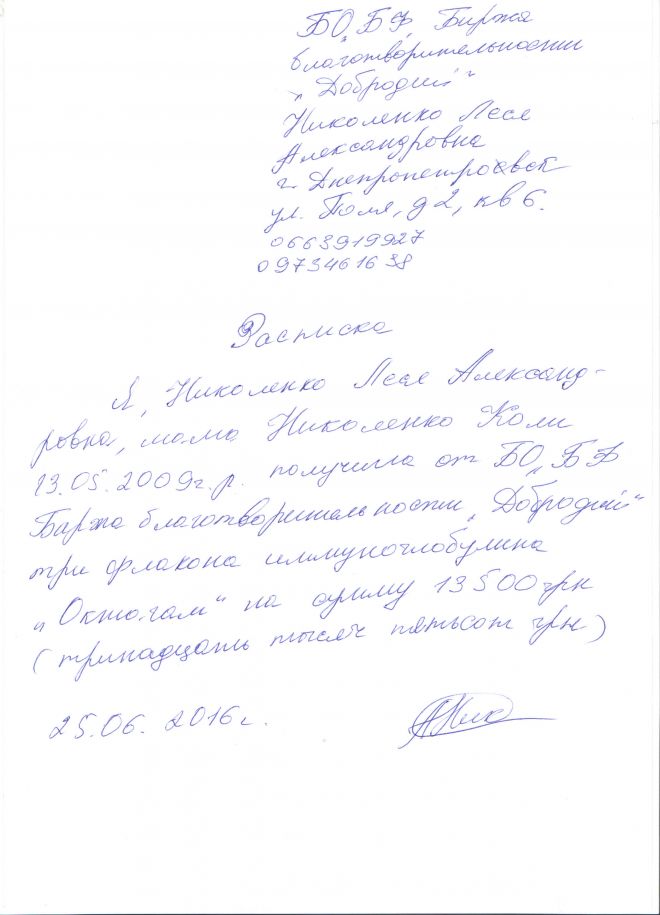 БО „БФ Биржа
благотворительности
„Добродий"
Николенко Леся
Александровна
г. Днепропетровск
ул. Поля, д 2, кв 6.
0663919927
0973461638
Расписка
Я, Николенко Леся Александ-
ровна, мама Николенко Коли
13.05.2009г.р. получила от БО „БФ
Биржа благотворительности „Добродий"
три флакона иммуноглобулина
„Октагам" на сумму 13500 грн
(тринадцать тысяч пятьсот грн)
25.06.2016г.